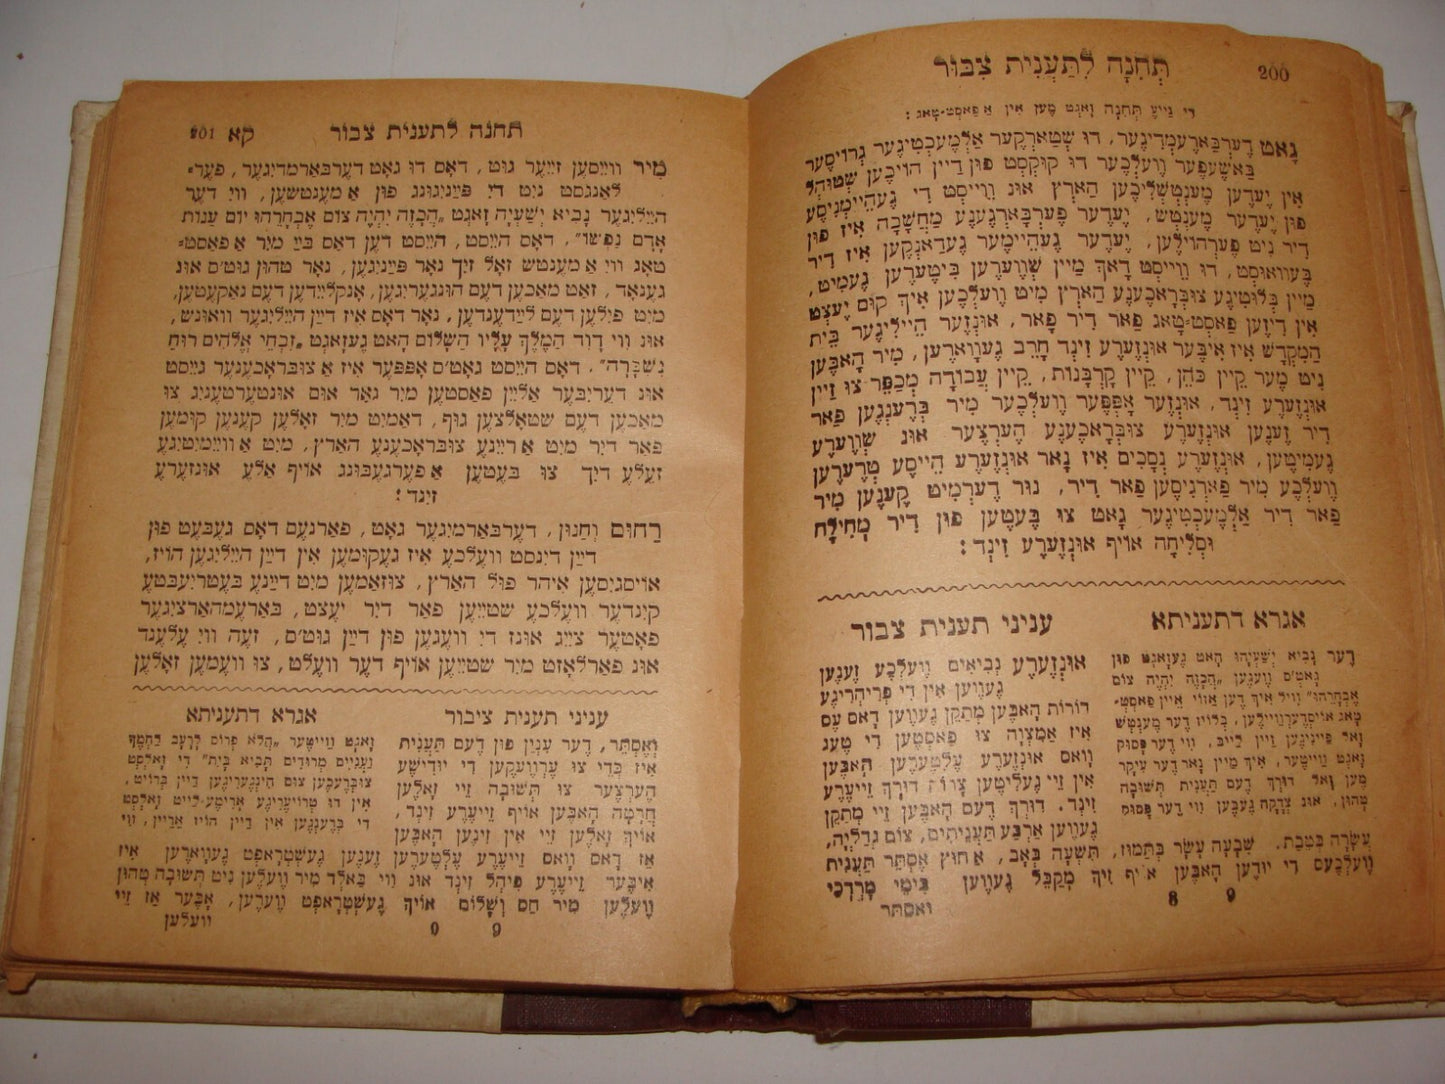 200
תְּחִנָה לְתַעֲנִית צִבּוּר
די נייע תחנה זאגט מען אין א פאסט־טאג:
גאט דערבארעמדיגער, דו שטארקער אלמעכטיגער גרויסער
באשעפער וועלכער דו קוקסט פון דיין הויכען שטוהל
אין יעדען מענטשליכען הארץ און ווייסט די געהיימניסע
פון יעדער מענטש, יעדער פערבארגענע מחשבה איז פון
דיר ניט פערהוילען, יעדער געהיימער געדאנקען איז דיר
בעוואוסט, דו ווייסט דאך מיין שווערען ביטערען געמיט,
מיין בלוטיגע צובראכענע הארץ מיט וועלכען איך קום יעצט
אין דיזען פאסט־טאג פאר דיר פאר, אונזער הייליגער בית
המקדש איז איבער אונזערע זינד חרב געווארען, מיר האבען
ניט מער קיין כהן, קיין קרבנות, קיין עבודה מכפר צו זיין
אונזערע זינד, אונזער אפפער וועלכער מיר ברענגען פאר
דיר זענען אונזערע צובראכענע הערצער און שווערע
געמיטען, אונזערע נסכים איז נאר אונזערע הייסע טרערען
וועלכע מיר פארגיסען פאר דיר, נור דערמיט קענען מיר
פאר דיר אלמעכטיגער גאט צו בעטען פון דיר מחילה
וסליחה אויף אונזערע זינד:
אגרא דתעניתא
דער נביא ישעיהו האט געזאגט פון
גאט'ס וועגען „הכזה יהיה צום
אבחרהו" וויל איך דען אזוי איין פאסט־
טאג אויסדערוויילען, בלויז דער מענטש
זאל פייניגען זיין לייב, ווי דער פסוק
זאגט ווייטער, איך מיין נאר דער עיקר
מען זאל דורך דעם תענית תשובה
טהון, און צדקה געבען ווי דער פסוק
עניני תענית צבור
אונזערע נביאים וועלכע זענען
געווען אין די פריהריגע
דורות האבען מתקן געווען דאס עס
איז א מצוה צו פאסטען די טעג
וואס אונזערע עלטערען האבען
אין זיי געליטען צרות דורך זייערע
זינד. דורך דעם האבען זיי מתקן
געווען ארבע תעניתים, צום גדליה,
עשרה בטבת. שבעה עשר בתמוז, תשעה באב, אחוץ אסתר תענית
וועלכעס די יודען האבען אויף זיך מקבל געווען בימי מרדכי
ואסתר
8 9
תחנה לתענית צבור קא 201
מיר ווייסען זייער גוט, דאס דו גאט דערבארמדיגער, פער־
לאנגסט ניט די פייניגונג פון א מענטשען, ווי דער
הייליגער נביא ישעיה זאגט „הכזה יהיה צום אבחרהו יום ענות
אדם נפשו". דאס הייסט, הייסט דען דאס ביי מיר א פאסט־
טאג ווי א מענטש זאל זיך נאר פייניגען, נאר טהון גוט'ס און
גענאד, זאט מאכען דעם הונגעריגען, אנקליידען דעם נאקעטען,
מיט פילען דעם ליידענדען, נאר דאס איז דיין הייליגער וואונש,
און ווי דוד המלך עליו השלום האט געזאגט „זבחי אלהים רוח
נשברה". דאס הייסט גאט'ס אפפער איז א צובראכענער גייסט
און דעריבער אליין פאסטען מיר נאר אום אונטערטעניג צו
מאכען דעם שטאלצען גוף, דאמיט מיר זאלען קענען קומען
פאר דיר מיט א ריינע צובראכענע הארץ, מיט א ווייטיגע
זעלע דיך צו בעטען א פערגעבונג אויף אלע אונזערע
זינד!
רחום וחנון, דערבארמיגער גאט, פארנעם דאס געבעט פון
דיין דינסט וועלכע איז געקומען אין דיין הייליגען הויז,
אויסגיסען איהר פול הארץ, צוזאמען מיט דיינע בעטריעבטע
קינדער וועלכע שטייען פאר דיר יעצט, בארעמהארציגער
פאטער צייג אונז די וועגען פון דיין גוט'ס, זעה ווי עלענד
און פארלאזט מיר שטייען אויף דער וועלט, צו וועמען זאלען
עניני תענית ציבור
ואסתר, דער ענין פון דעם תענית
איז כדי צו ערוועקען די יודישע
הערצער צו תשובה זיי זאלען
חרטה האבען אויף זייערע זינד,
אויך זאלען זיי אין זינען האבען
אז דאס וואס זייערע עלטערען זענען געשטראפט געווארען איז
איבער זייערע פיהל זינד און ווי באלד מיר וועלען ניט תשובה טהון
וועלען מיר חס ושלום אויך געשטראפט ווערען, אבער אז זיי
וועלען
אגרא דתעניתא
זאגט ווייטער „הלא פרוס לרעב לחמך
ועניים מרודים תביא בית" די זאלסט
צוברעכען צום הינגעריגען דיין ברויט,
אין דו טרויעריגע ארימע־לייט זאלסט
די ברענגען אין דיין הויז אריין, ווי
0 9